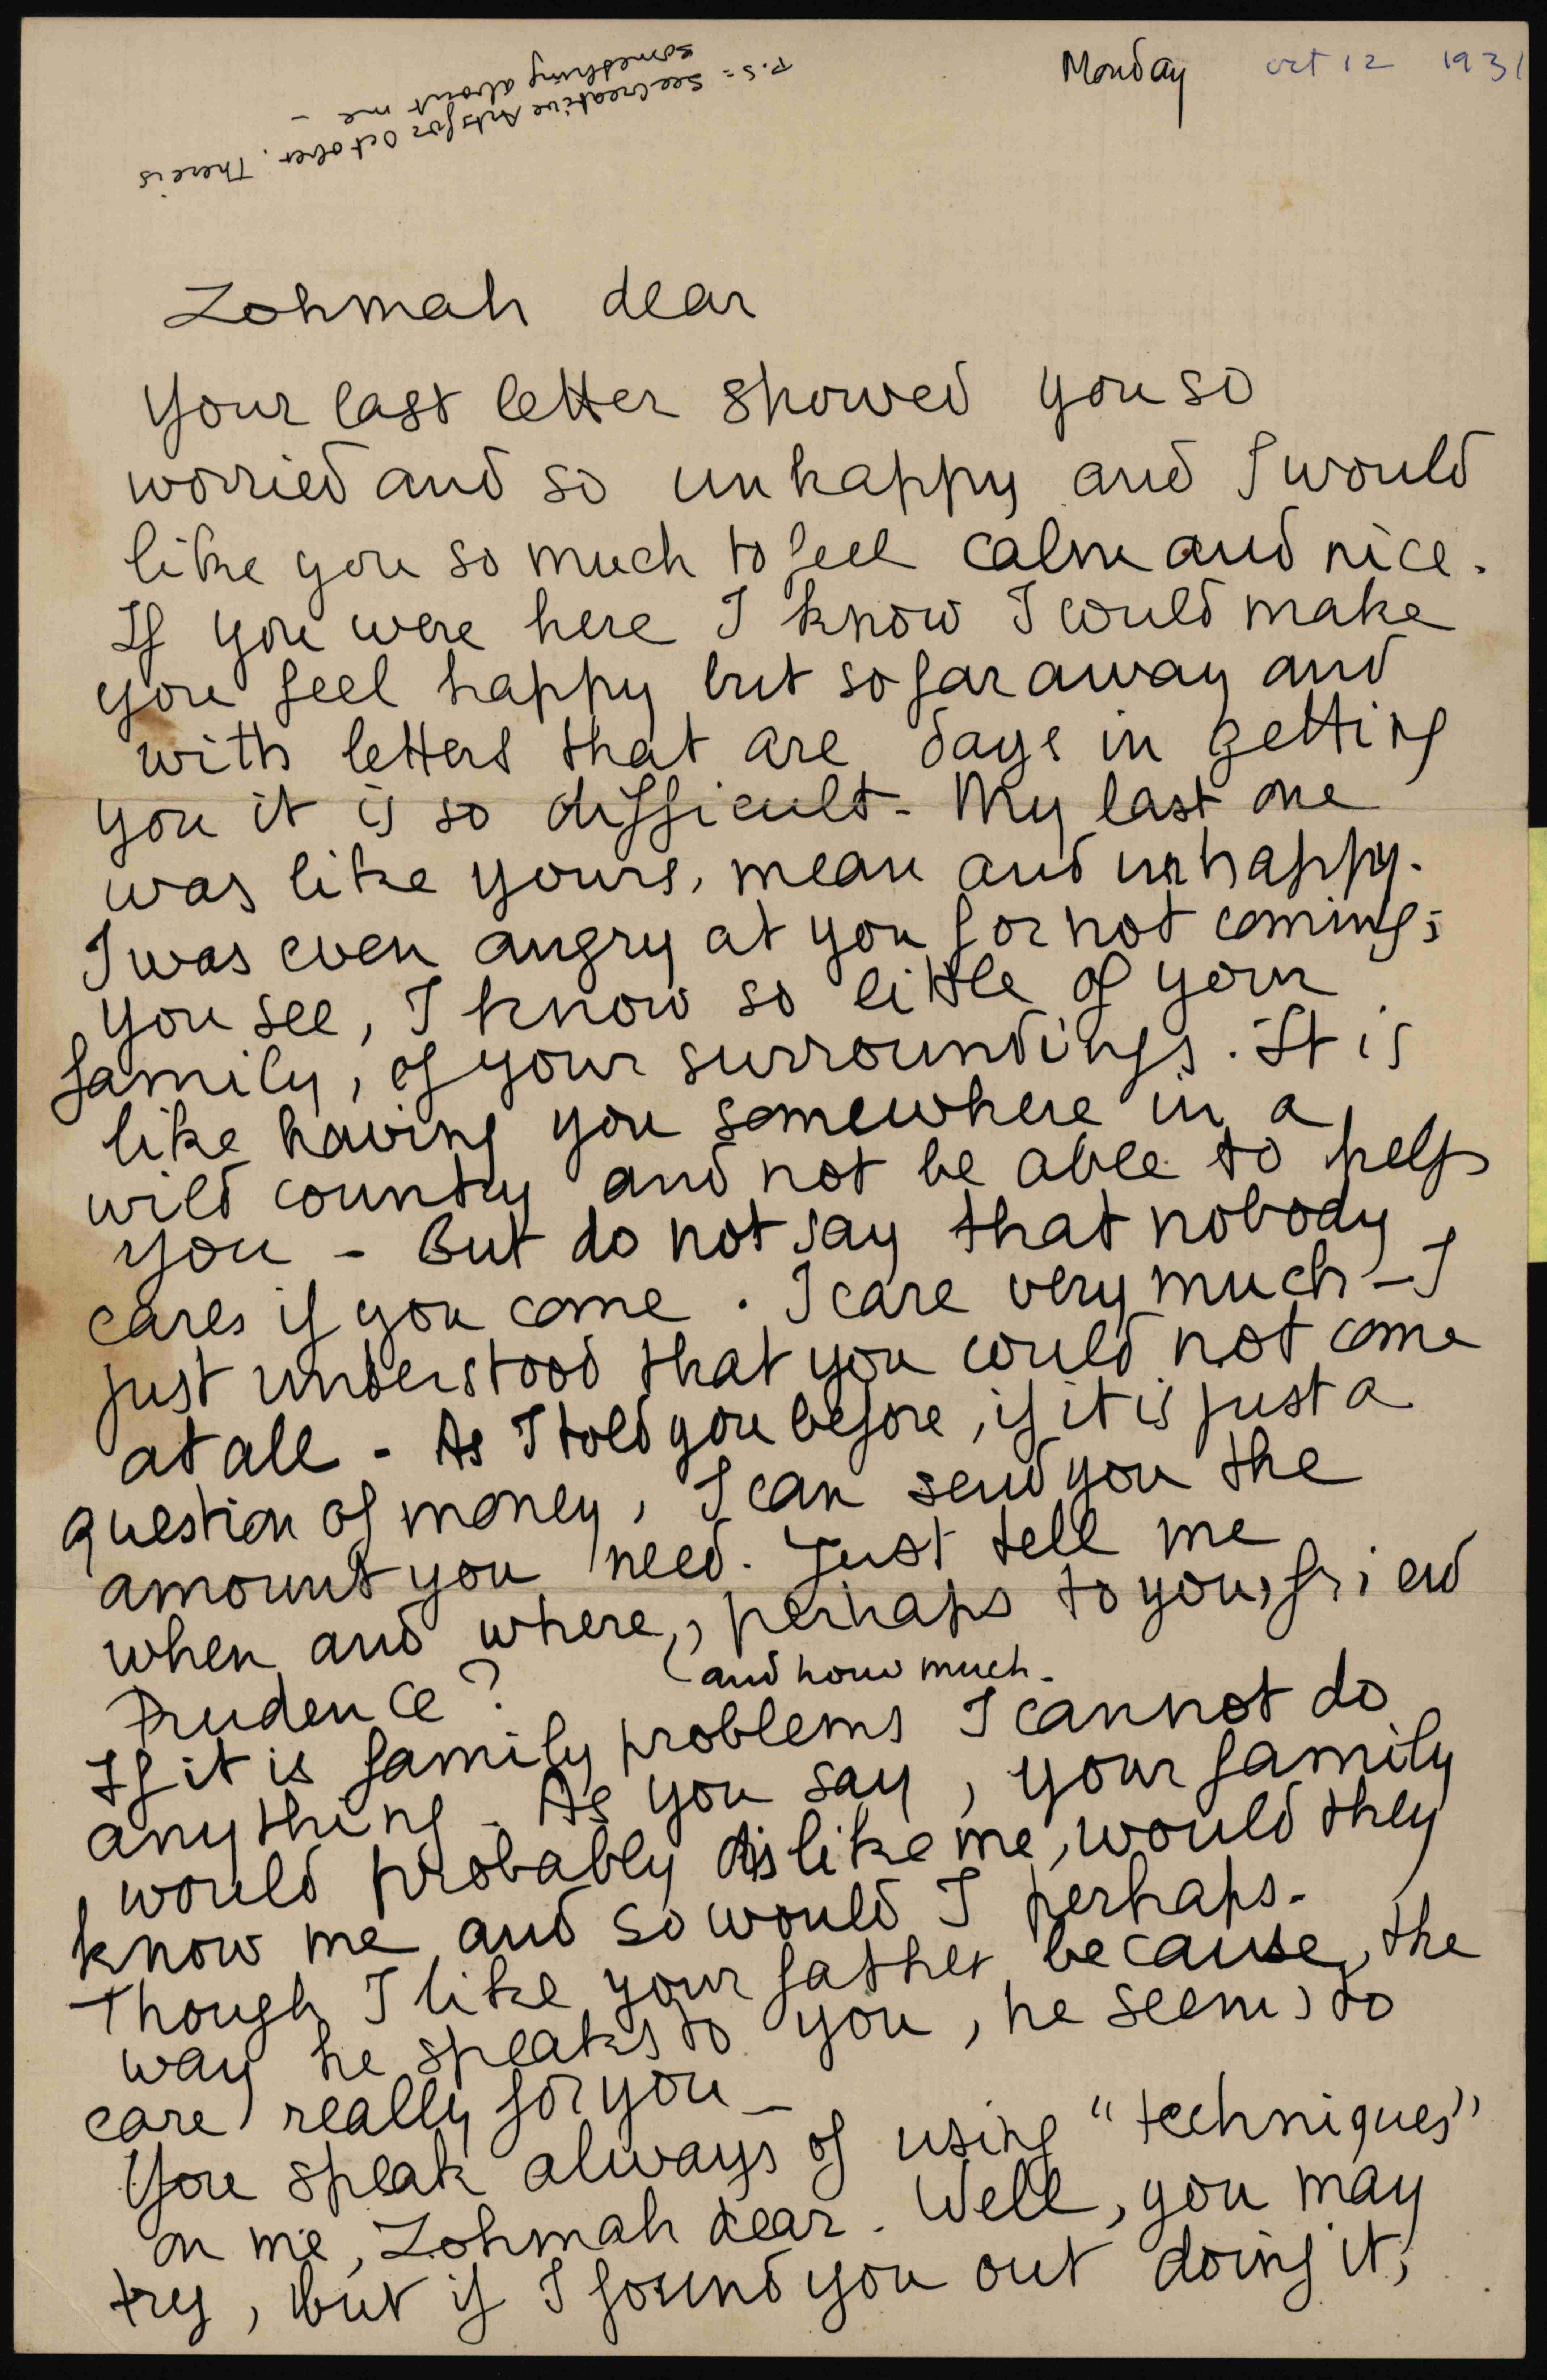 Monday oct 12 1931
P.S = See Creative Arts for October. There is
something about me -
Zohmah dear
Your last letter showed you so
worried and so unhappy and I would
like you so much to feel calm and nice.
If you were here I know I could make
you feel happy but so far away and
with letters that are days in getting
you it is so difficult - My last one
was like yours, mean and unhappy.
I was even angry at you for not coming;
you see, I know so little of your
family, of your surroundings. It is
like having you somewhere in a
wild country and not be able to help
you - But do not say that nobody
cares if you come . I care very much - I
just understood that you could not come
at all - As I told you before, if it is just a
question of money, I can send you the
amount you need. Just tell me
when and where, perhaps to your friend
and how much -
Prudence ?
If it is family problems I cannot do
anything - As you say, your family
would probably dislike me, would they
know me and so would I perhaps -
Though I like your father because, the
way he speaks to you, he seems to
care really for you -
You speak always of using "techniques"
on me, Zohmah dear . Well, you may
try, but if I found you out doing it,